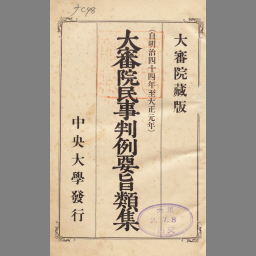 大審院藏版
(自明治四十四年至大正元年)
大審院民事判例要旨類集
中央大學發行